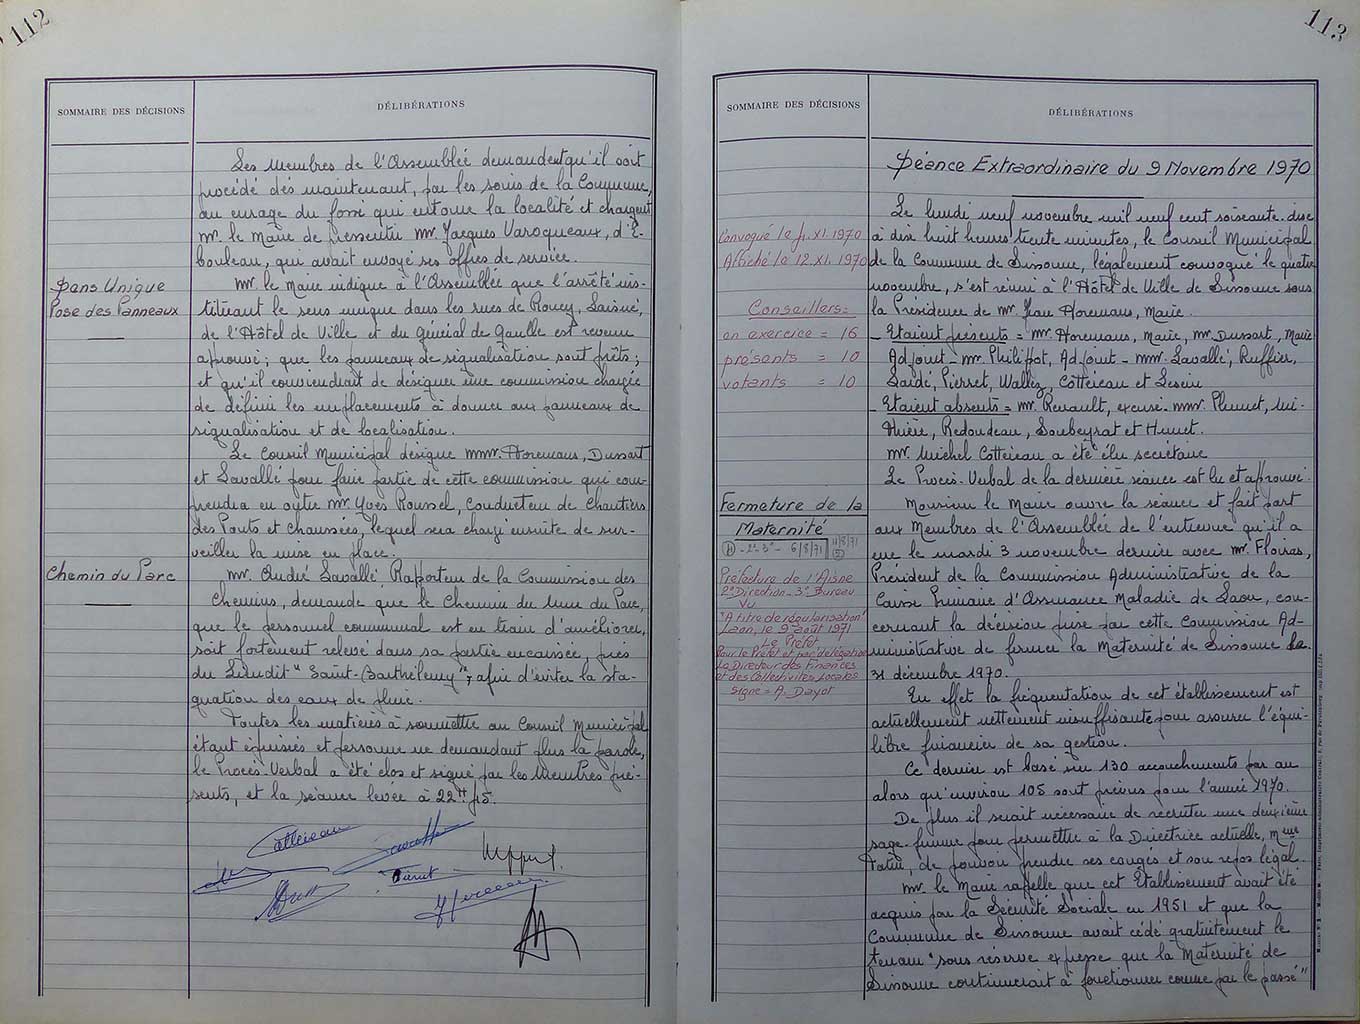 112
SOMMAIRE DES DÉCISIONS
DÉLIBÉRATIONS
Les Membres de l'Assemblée demandent qu'il soit
procédé dès maintenant, par les soins de la Commune,
au curage du fossé qui entoure la localité et chargent
Mr. le Maire de pressentir Mr. Jacques Varoqueaux, d'É-
bouleau, qui avait envoyé ses offres de service.
Sens Unique
Pose des Panneaux
Mr. le Maire indique à l'Assemblée que l'arrêté ins-
tituant le sens unique dans les rues de Roucy, Saisne,
de l'Hôtel de Ville et du Général de Gaulle est revenu
aprouvé; que les panneaux de signalisation sont prêts;
et qu'il conviendrait de désigner une commission chargée
de définir les emplacements à donner aux panneaux de
signalisation et de localisation.
Le Conseil Municipal désigne MMr. Horemans, Dussart
et Lavallé pour faire partie de cette commission qui com-
prendra en outre Mr. Yves Roussel, Conducteur de Chantiers
des Ponts et chaussées, lequel sera chargé ensuite de sur-
veiller la mise en place.
Chemin du Parc
Mr. André Lavallé, Raporteur de la Commission des
Chemins, demande que le Chemin du Mur du Parc,
que le personnel communal est en train d'améliorer,
soit fortement relevé dans sa partie encaissée, près
du Lieudit "Saint-Barthélemy", afin d'éviter la sta-
gnation des eaux de pluie.
Toutes les matières à soumettre au Conseil Municipal
étant épuisées et personne ne demandant plus la parole,
le Procès-Verbal a été clos et signé par les Membres pré-
sents, et la séance levée à 22H 15.
Cottereau
113
SOMMAIRE DES DÉCISIONS
DÉLIBÉRATIONS
Séance Extraordinaire du 9 Novembre 1970
Convoqué le 4. XI. 1970
Affiché le 12. XI. 1970
Conseillers =
en exercice = 16
présents = 10
votants = 10
Le lundi neuf novembre mil neuf cent soixante-dix
à dix huit heures trente minutes, le Conseil Municipal
de la Commune de Sissonne, légalement convoqué le quatre
novembre, s'est réuni à l'Hôtel de Ville de Sissonne sous
la Présidence de Mr. Jean Horemans, Maire.
- Etaient présents = Mr. Horemans, Maire, Mr. Dussart, Maire
Adjoint - Mr. Philippot, Adjoint - MMr. Lavallé, Ruffier,
Saidé, Pierret, Wallez, Cottereau et Lesein
- Etaient absents = Mr. Renault, excusé - MMr. Plumet, Lui-
thière, Redondeau, Soubeyrat et Hunet.
Mr. Michel Cottereau a été élu secrétaire
Le Procès-Verbal de la dernière séance est lu et aprouvé.
Fermeture de la
Maternité
6/8/71
11/8/71
Préfecture de l'Aisne
2° Direction - 3° Bureau
Vu
"A titre de régularisation"
Laon, le 9 août 1971
Le Préfet
Pour le Préfet et par délégation
Le Directeur des Finances
et des Collectivités Locales
signé = A. Dayot
Monsieur le Maire ouvre la séance et fait part
aux Membres de l'Assemblée de l'entrevue qu'il a
eue le mardi 3 novembre dernier avec Mr. Floiras,
Président de la Commission Administrative de la
Caisse Primaire d'Assurance Maladie de Laon, con-
cernant la décision prise par cette Commission Ad-
ministrative de fermer la Maternité de Sissonne le
31 décembre 1970.
En effet la fréquentation de cet établissement est
actuellement nettement insuffisante pour assurer l'équi-
libre financier de sa gestion.
Ce dernier est basé sur 130 accouchements par an
alors qu'environ 105 sont prévus pour l'année 1970.
De plus il serait nécessaire de recruter une deuxième
sage-femme pour permettre à la Directrice actuelle, Mme
Tatin, de pouvoir prendre ses congés et son repos légal.
Mr. le Maire rapelle que cet Etablissement avait été
acquis par la Sécurité Sociale en 1951 et que la
Commune de Sissonne avait cédé gratuitement le
terrain "sous réserve expresse que la Maternité de
Sissonne continuerait à fonctionner comme par le passé"